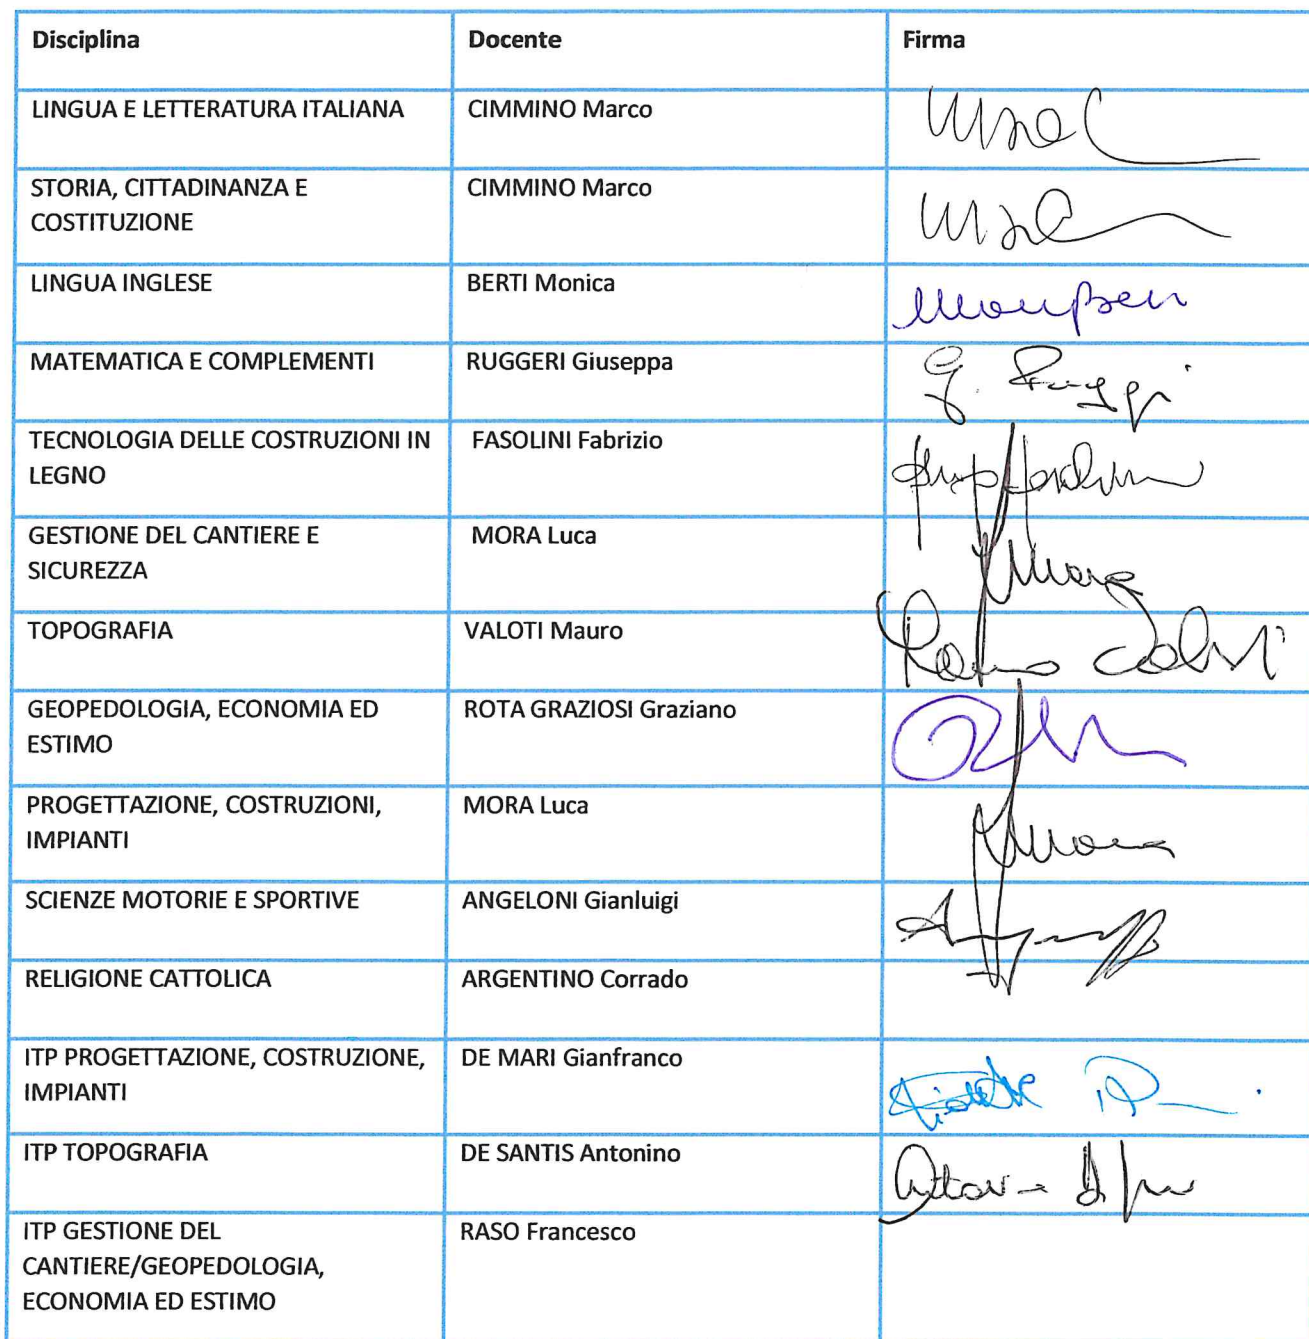 Disciplina Docente Firma
LINGUA E LETTERATURA ITALIANA CIMMINO Marco
STORIA, CITTADINANZA E CIMMINO Marco
COSTITUZIONE
LINGUA INGLESE BERTI Monica
MATEMATICA E COMPLEMENTI RUGGERI Giuseppa
TECNOLOGIA DELLE COSTRUZIONI IN FASOLINI Fabrizio
LEGNO
GESTIONE DEL CANTIERE E MORA Luca
SICUREZZA
TOPOGRAFIA VALOTI Mauro
GEOPEDOLOGIA, ECONOMIA ED ROTA GRAZIOSI Graziano
ESTIMO
PROGETTAZIONE, COSTRUZIONI, MORA Luca
IMPIANTI
SCIENZE MOTORIE E SPORTIVE ANGELONI Gianluigi
RELIGIONE CATTOLICA ARGENTINO Corrado
ITP PROGETTAZIONE, COSTRUZIONE, DE MARI Gianfranco
IMPIANTI
ITP TOPOGRAFIA DE SANTIS Antonino
ITP GESTIONE DEL RASO Francesco
CANTIERE/GEOPEDOLOGIA,
ECONOMIA ED ESTIMO